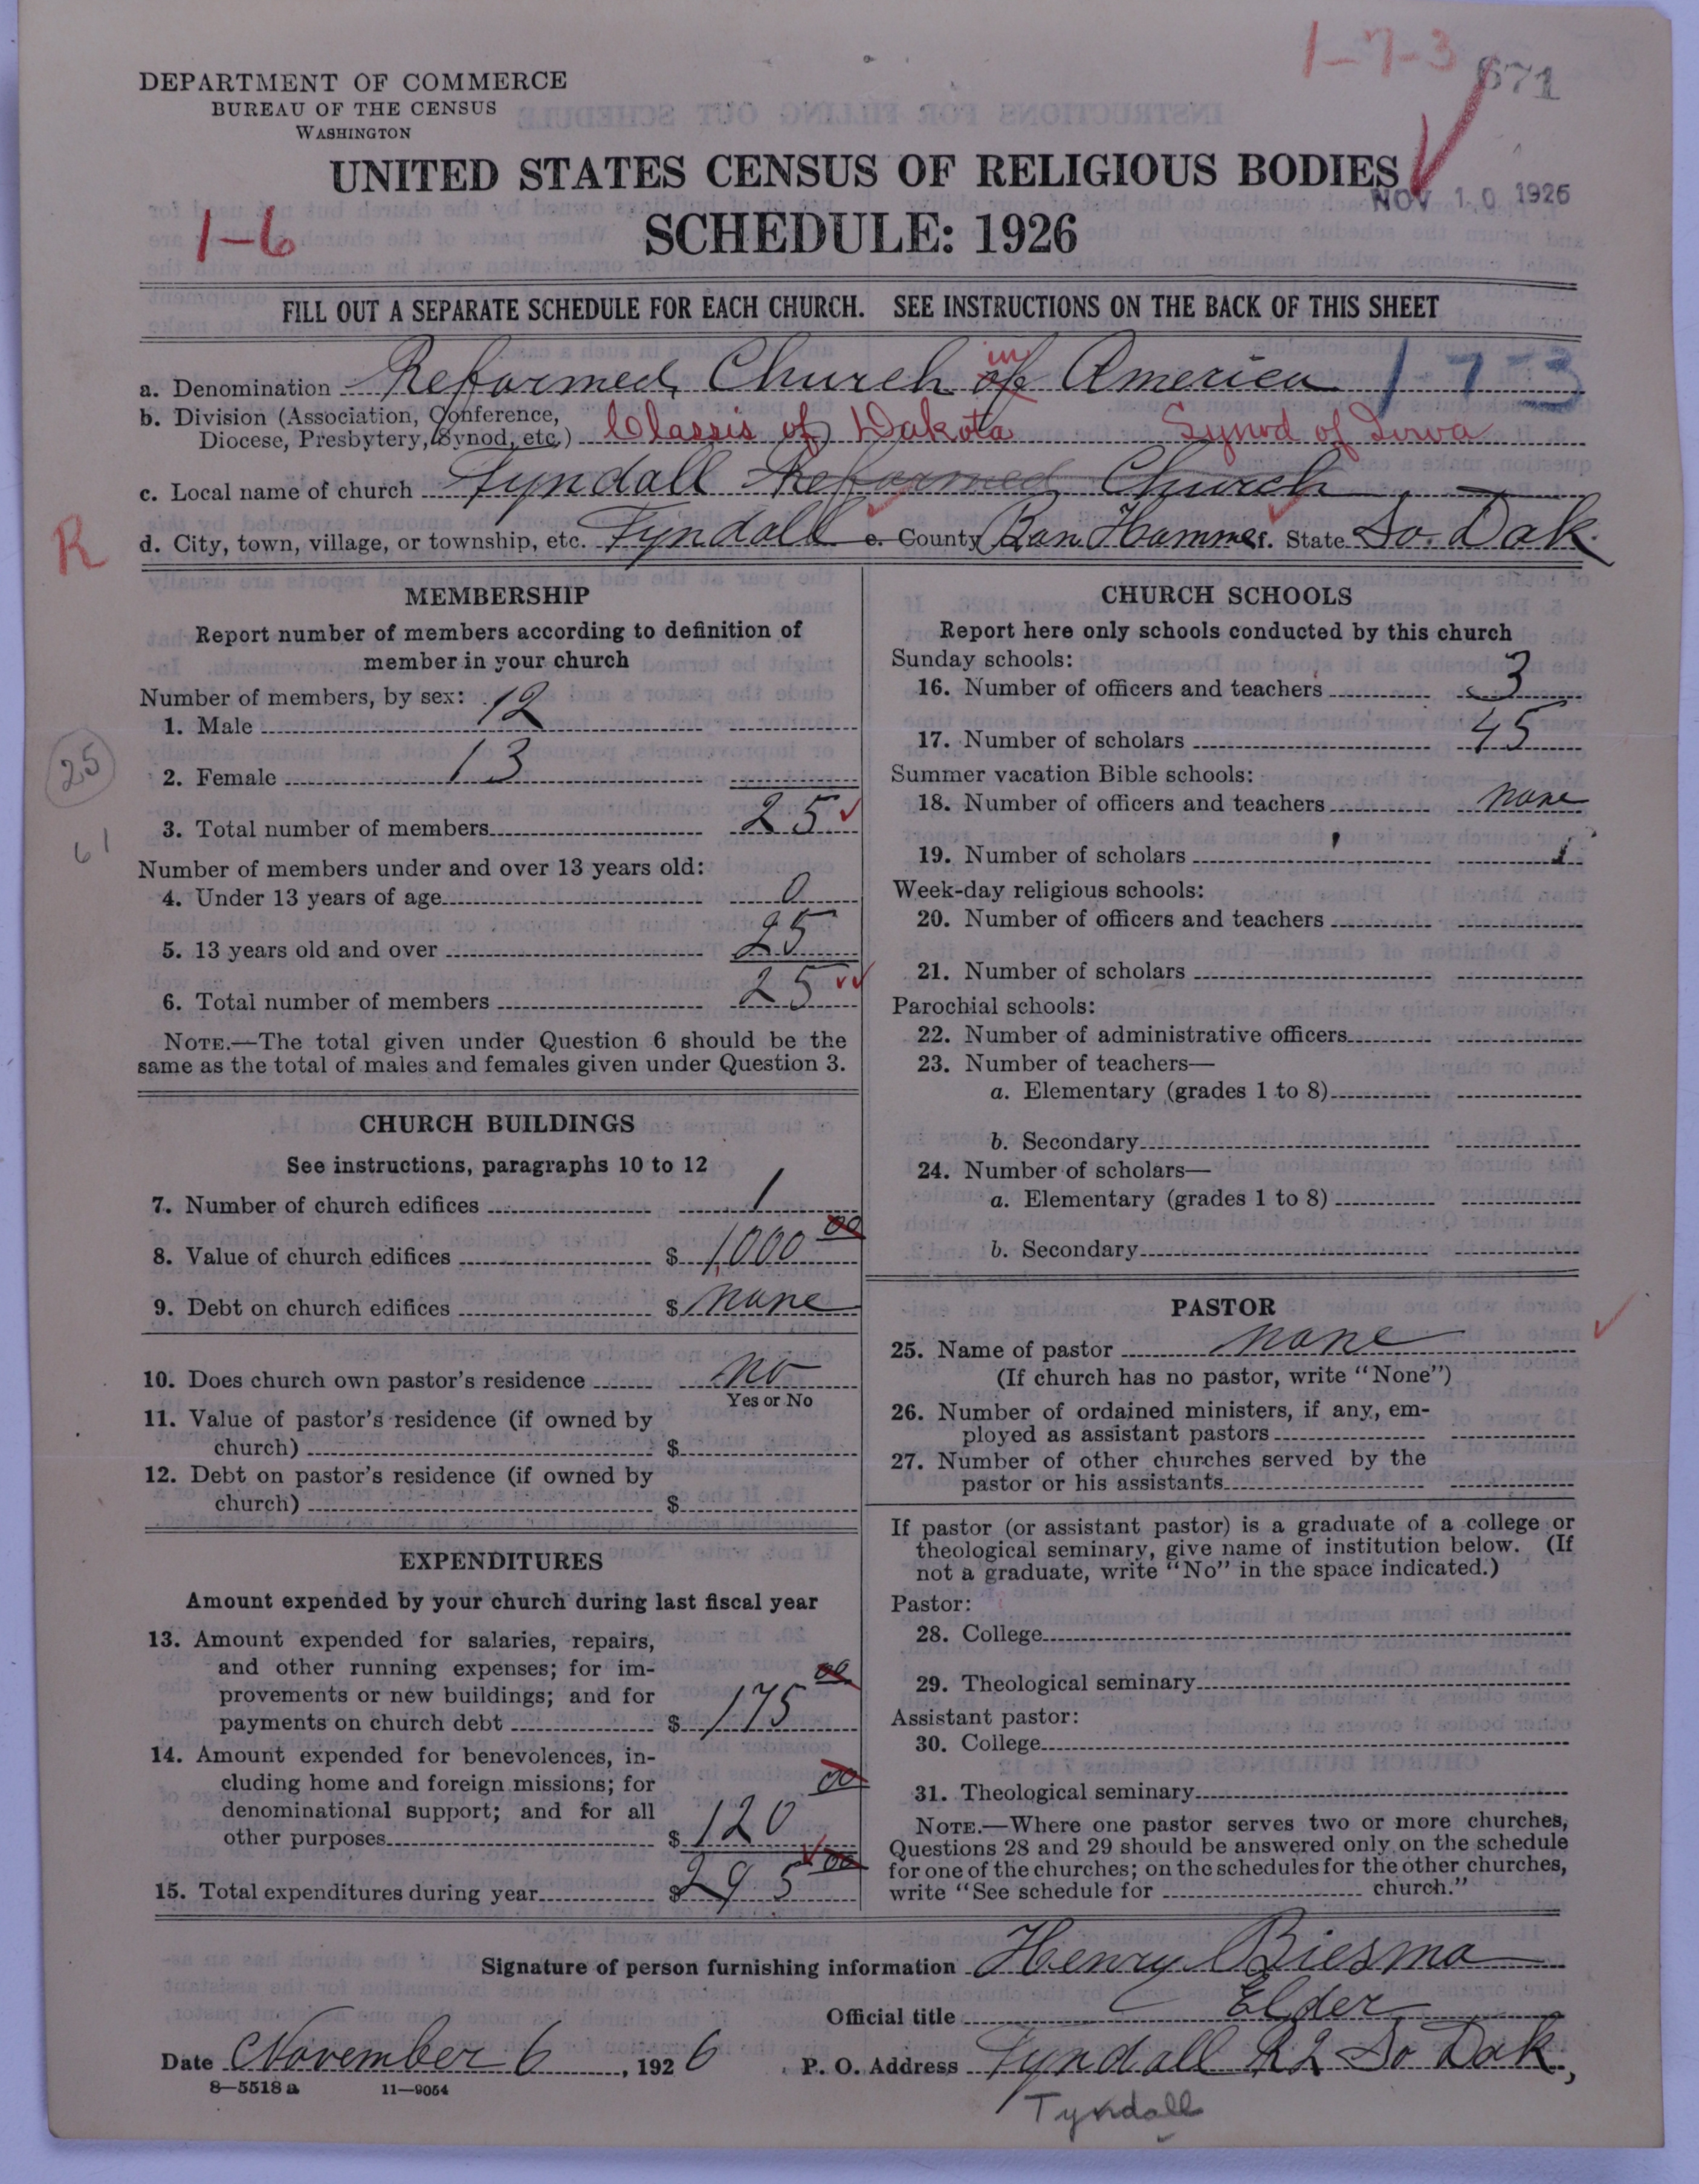 1-7-3
671
DEPARTMENT OF COMMERCE
BUREAU OF THE CENSUS
WASHINGTON
UNITED STATES CENSUS OF RELIGIOUS BODIES
NOV 10 1926
1-6
SCHEDULE: 1926
FILL OUT A SEPARATE SCHEDULE FOR EACH CHURCH. SEE INSTRUCTIONS ON THE BACK OF THIS SHEET
in
a. Denomination Reformed Church of America 173
b. Division (Association, Conference,
Diocese, Presbytery, Synod, etc.) Classis of Dakota Synod of Iowa
c. Local name of church Tyndall Reformed Church
R
d. City, town, village, or township, etc. Tyndall e. County Bon Hommer. State So. Dak.
MEMBERSHIP
Report number of members according to definition of
member in your church
Number of members, by sex:
1. Male 12
2. Female 13
25
3. Total number of members 25
61
Number of members under and over 13 years old:
4. Under 13 years of age 0
5. 13 years old and over 25
6. Total number of members 25
NOTE.—The total given under Question 6 should be the
same as the total of males and females given under Question 3.
CHURCH BUILDINGS
See instructions, paragraphs 10 to 12
7. Number of church edifices 1
8. Value of church edifices $ 1,000 00
9. Debt on church edifices $ none
10. Does church own pastor's residence no
Yes or No
11. Value of pastor's residence (if owned by
church) $
12. Debt on pastor's residence (if owned by
church) $
EXPENDITURES
Amount expended by your church during last fiscal year
13. Amount expended for salaries, repairs,
and other running expenses; for im-
provements or new buildings; and for
payments on church debt $ 175 00
14. Amount expended for benevolences, in-
cluding home and foreign missions; for
denominational support; and for all
other purposes $ 120 00
15. Total expenditures during year $ 295 00
CHURCH SCHOOLS
Report here only schools conducted by this church
Sunday schools:
16. Number of officers and teachers 3
17. Number of scholars 45
Summer vacation Bible schools:
18. Number of officers and teachers none
19. Number of scholars
Week-day religious schools:
20. Number of officers and teachers
21. Number of scholars
Parochial schools:
22. Number of administrative officers
23. Number of teachers—
a. Elementary (grades 1 to 8)
b. Secondary
24. Number of scholars—
a. Elementary (grades 1 to 8)
b. Secondary
PASTOR
25. Name of pastor none
(If church has no pastor, write "None")
26. Number of ordained ministers, if any, em-
ployed as assistant pastors
27. Number of other churches served by the
pastor or his assistants
If pastor (or assistant pastor) is a graduate of a college or
theological seminary, give name of institution below. (If
not a graduate, write "No" in the space indicated.)
Pastor:
28. College
29. Theological seminary
Assistant pastor:
30. College
31. Theological seminary
NOTE.—Where one pastor serves two or more churches,
Questions 28 and 29 should be answered only on the schedule
for one of the churches; on the schedules for the other churches,
write "See schedule for church."
Signature of person furnishing information Henry Biesma
Official title Elder
Date November 6, 1926 P. O. Address Tyndall R2 So Dak,
8—5518 a 11—9054
Tyndall